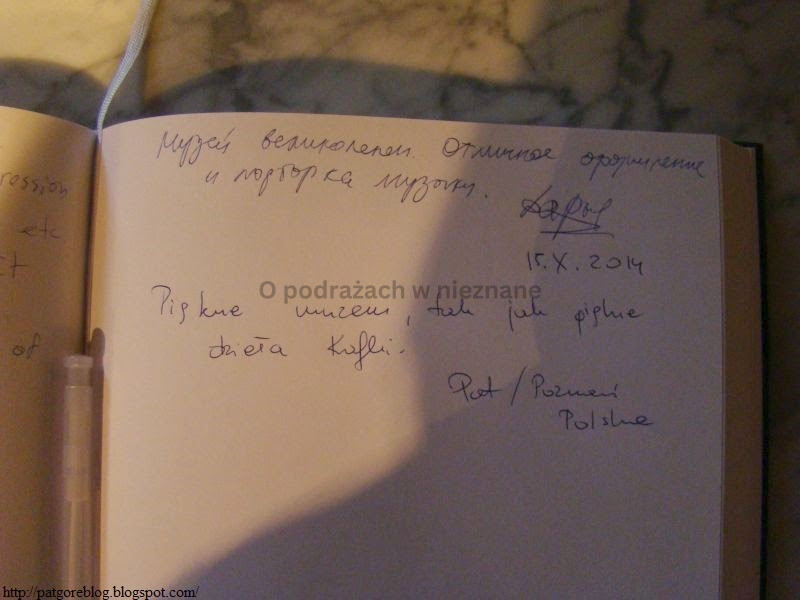 ression
etc
of
Музей великолепен. Отличное оформление
и подборка музыки.
15.X.2014
O podrażach w nieznane
Piękne muzeum, tak jak piękne
dzieła Kafki.
Pat / Poznań
Polska
http://patgoreblog.blogspot.com/